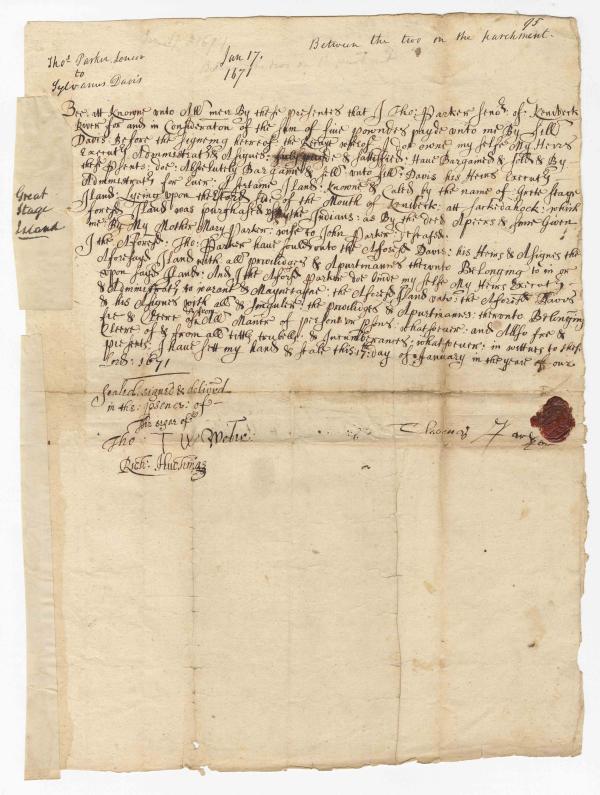 95
Between the two on the parchment.
Jan 17.
1671
Thos Parker Senior
to
Sylvanus Davis
Great
Stage
Island
Bee att Knowne unto All men By these presents that I Tho: Parker Senor of Kenibeck
River for and in Consideration of the sum of five pownds payde unto me By Sill
Davis Before the Signeing heerof the I do owne my selfe My Heyrs
Execut Administrat & Asignes: fully payde & satisfied: Have Bargained & sold & By
these Psents: doe: Absolutely Bargaine & sell unto Sill: Davis his Heirs Execut
Administrat for Ever: A sertaine Iland: Knowne & Called by the name of Grete Stage
Iland: Lyeing upon the side of the Mouth of Kenibeck: att Sackedahock: which
Iland was purchased of the Indians: as By the deed Apeers & sinse Given
me By My Mother Mary Parker: wife to John Parker desesed.
I the Aforesd: Tho: Parker have sould unto the Aforesd Davis: his Heirs & Asignes the
Aforesayd Iland with all priviledges & Apurtinanns therunto Belonging to in or
upon sayd Iland: And I the Aforesd Parker doe binde my selfe My Heirs Execut
& Administrat to warant & Mayntaine the Aforesd Iland unto the Aforesd Davis
& his Asignes with all & singuler the priviledges & Apurtinanns: therunto Belonging
fre & Clere of & from All Maner of person or psons whatsoever: and Allso fre &
Cleere of & from all tittls trubells & Incumbrances: whatsoever: in wittnes to these
presents: I have sett my hand & seale this 17: day of January in the yeare of our
Lord: 1671
Sealed signed & deliverd
in the psence: of
The signe of
Tho: T W Webe
Rich: Hutchings
Thomas Parker